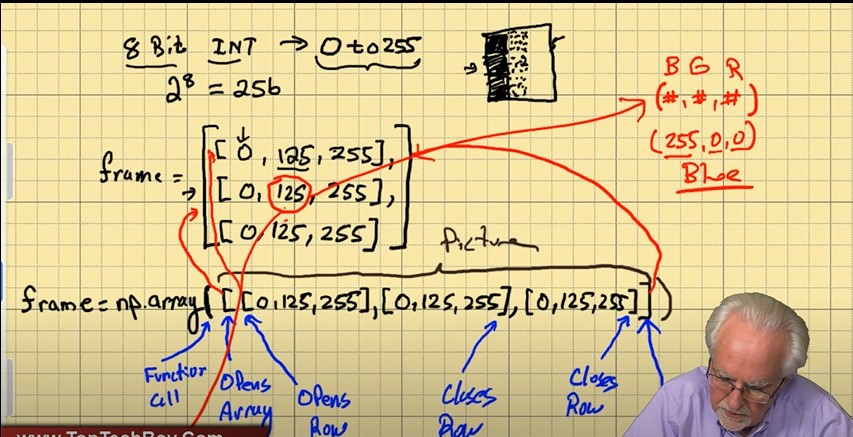 8 Bit INT → 0 to 255
2⁸ = 256
B G R
(#, #, #)
(255, 0, 0)
Blue
frame =
[[ 0, 125, 255],
[ 0, 125, 255],
[ 0, 125, 255] ]
Picture
frame = np.array([[0,125,255],[0,125,255],[0,125,255]])
Function
Call
Opens
Array
Opens
Row
Closes
Row
Closes
Row
www.TopTechBoy.Com